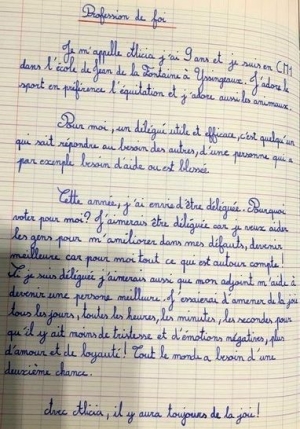 Profession de foi
Je m'appelle Alicia j'ai 9 ans et je suis en CM1
dans l'école de Jean de la Fontaine à Yssingeaux. J'adore le
sport en préférence l'équitation et j'adore aussi les animaux.
Pour moi, un délégué utile et efficace, c'est quelqu'un
qui sait répondre au besoin des autres, d'une personne qui a
par exemple besoin d'aide ou est blessée.
Cette année, j'ai envie d'être déléguée. Pourquoi
voter pour moi? J'aimerais être déléguée car je veux aider
les gens pour m'améliorer dans mes défauts, devenir
meilleure car pour moi tout ce qui est autour compte!
Si je suis déléguée j'aimerais aussi que mon adjoint m'aide à
devenir une personne meilleure. J'essaierai d'amener de la joie
tous les jours, toutes les heures, les minutes, les secondes pour
qu'il y ait moins de tristesse et d'émotions négatives, plus
d'amour et de loyauté! Tout le monde a besoin d'une
deuxième chance.
Avec Alicia, il y aura toujours de la joie!